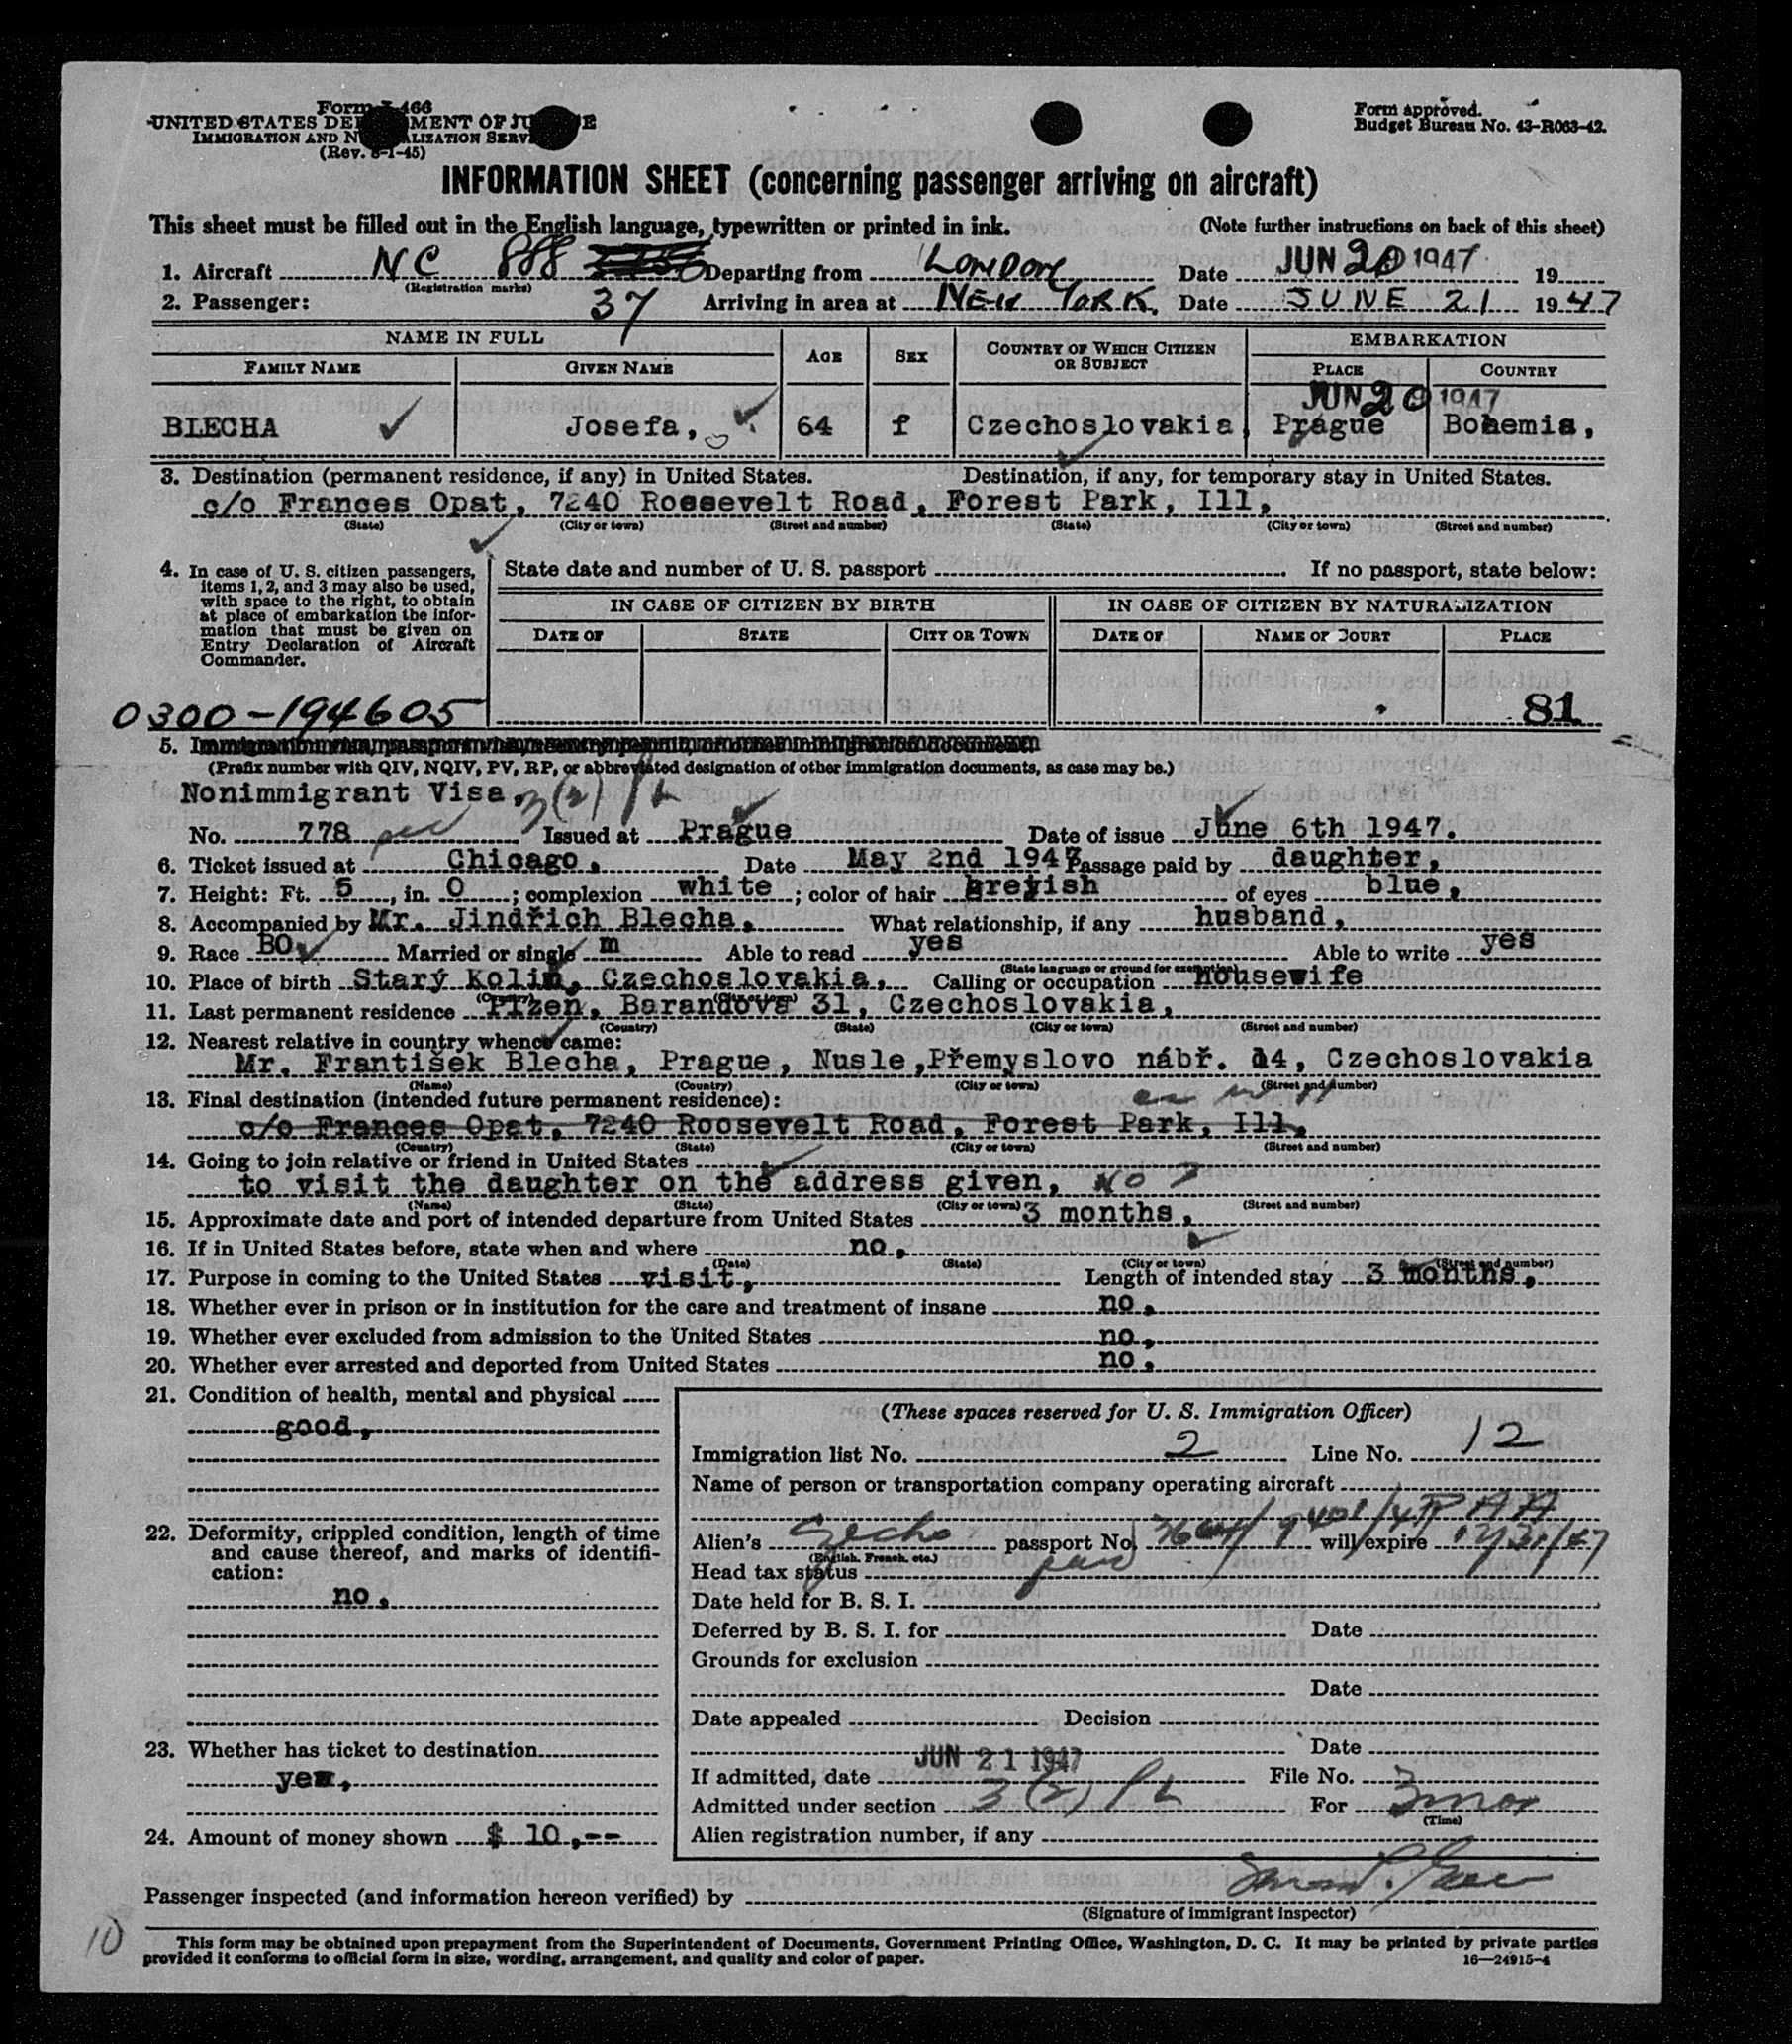 Form I-466
UNITED STATES DEPARTMENT OF JUSTICE
IMMIGRATION AND NATURALIZATION SERVICE
(Rev. 8-1-45)
Form approved.
Budget Bureau No. 43-R063-42.
INFORMATION SHEET (concerning passenger arriving on aircraft)
This sheet must be filled out in the English language, typewritten or printed in ink. (Note further instructions on back of this sheet)
1. Aircraft NC 888 Departing from LONDON Date JUN 20 1947 19
(Registration marks)
2. Passenger: 37 Arriving in area at NEW YORK. Date JUNE 21 1947
NAME IN FULL AGE SEX COUNTRY OF WHICH CITIZEN OR SUBJECT EMBARKATION
FAMILY NAME GIVEN NAME PLACE COUNTRY
JUN 20 1947
BLECHA Josefa, 64 f Czechoslovakia, Prague Bohemia,
3. Destination (permanent residence, if any) in United States. Destination, if any, for temporary stay in United States.
c/o Frances Opat, 7240 Roosevelt Road, Forest Park, Ill,
(State) (City or town) (Street and number) (State) (City or town) (Street and number)
4. In case of U. S. citizen passengers,
items 1, 2, and 3 may also be used,
with space to the right, to obtain
at place of embarkation the infor-
mation that must be given on
Entry Declaration of Aircraft
Commander.
State date and number of U. S. passport If no passport, state below:
IN CASE OF CITIZEN BY BIRTH IN CASE OF CITIZEN BY NATURALIZATION
DATE OF STATE CITY OR TOWN DATE OF NAME OF COURT PLACE
0300-194605 81
5. Immigration visa, passport visa, reentry permit, or other immigration document:
(Prefix number with QIV, NQIV, PV, RP, or abbreviated designation of other immigration documents, as case may be.)
Nonimmigrant Visa, 3(2)
No. 778 Issued at Prague Date of issue June 6th 1947.
6. Ticket issued at Chicago, Date May 2nd 1947 Passage paid by daughter,
7. Height: Ft. 5, in. 0; complexion white; color of hair greyish of eyes blue,
8. Accompanied by Mr. Jindřich Blecha, What relationship, if any husband,
9. Race BO Married or single m Able to read yes Able to write yes
(State language or ground for exemption)
10. Place of birth Starý Kolin, Czechoslovakia, Calling or occupation housewife
(Country) (City or town)
11. Last permanent residence Plzen, Barandova 31, Czechoslovakia,
(Country) (State) (City or town) (Street and number)
12. Nearest relative in country whence came:
Mr. František Blecha, Prague, Nusle,Přemyslovo nábř. 14, Czechoslovakia
(Name) (Country) (City or town) (Street and number)
13. Final destination (intended future permanent residence):
c/o Frances Opat, 7240 Roosevelt Road, Forest Park, Ill,
(Country) (State) (City or town) (Street and number)
14. Going to join relative or friend in United States
to visit the daughter on the address given, NO
(Name) (State) (City or town) (Street and number)
15. Approximate date and port of intended departure from United States 3 months,
16. If in United States before, state when and where no,
(Date) (State) (City or town) (Street and number)
17. Purpose in coming to the United States visit, Length of intended stay 3 months,
18. Whether ever in prison or in institution for the care and treatment of insane no,
19. Whether ever excluded from admission to the United States no,
20. Whether ever arrested and deported from United States no,
21. Condition of health, mental and physical
good,
22. Deformity, crippled condition, length of time
and cause thereof, and marks of identifi-
cation:
no,
23. Whether has ticket to destination
yes,
24. Amount of money shown $ 10,--
(These spaces reserved for U. S. Immigration Officer)
Immigration list No. 2 Line No. 12
Name of person or transportation company operating aircraft
PAA
Alien's Czecho passport No. will expire 12/31/47
(English, French, etc.)
Head tax status paid
Date held for B. S. I.
Deferred by B. S. I. for Date
Grounds for exclusion
Date
Date appealed Decision
Date
If admitted, date JUN 21 1947 File No.
Admitted under section 3(2) For 3 mos
(Time)
Alien registration number, if any
Passenger inspected (and information hereon verified) by
(Signature of immigrant inspector)
10
This form may be obtained upon prepayment from the Superintendent of Documents, Government Printing Office, Washington, D. C. It may be printed by private parties
provided it conforms to official form in size, wording, arrangement, and quality and color of paper. 16—24915-4